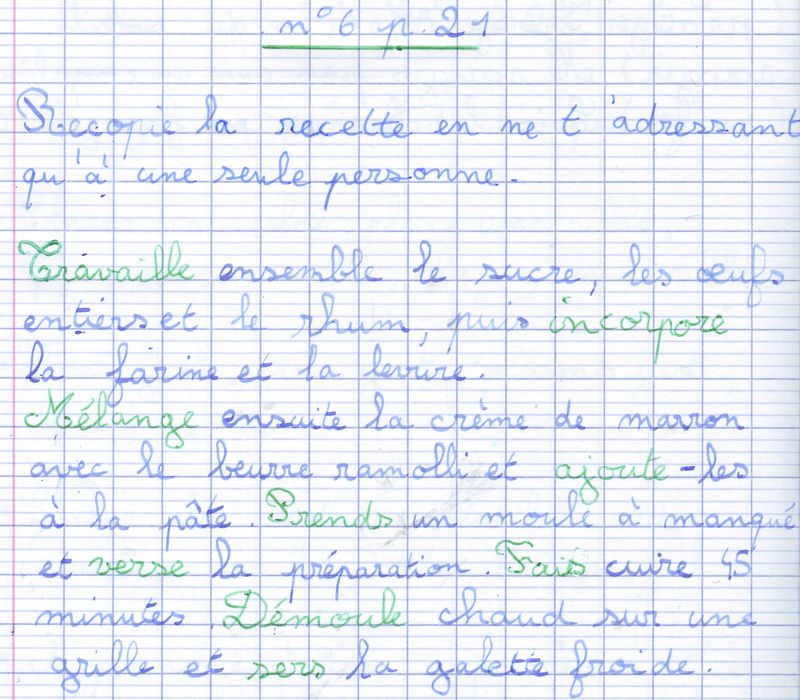 n° 6 p. 21
Recopie la recette en ne t'adressant
qu'à une seule personne.
Travaille ensemble le sucre, les œufs
entiers et le rhum, puis incorpore
la farine et la levure.
Mélange ensuite la crème de marron
avec le beurre ramolli et ajoute-les
à la pâte. Prends un moule à manqué
et verse la préparation. Fais cuire 45
minutes. Démoule chaud sur une
grille et sers la galette froide.